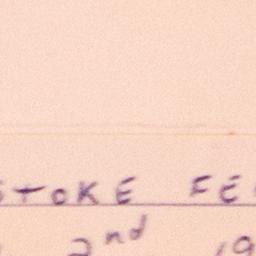 STOKE FE
2nd 19